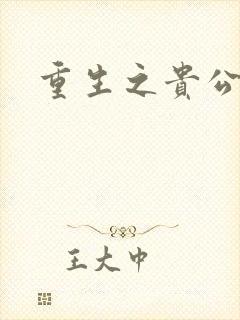 重生之貴公
王大巾